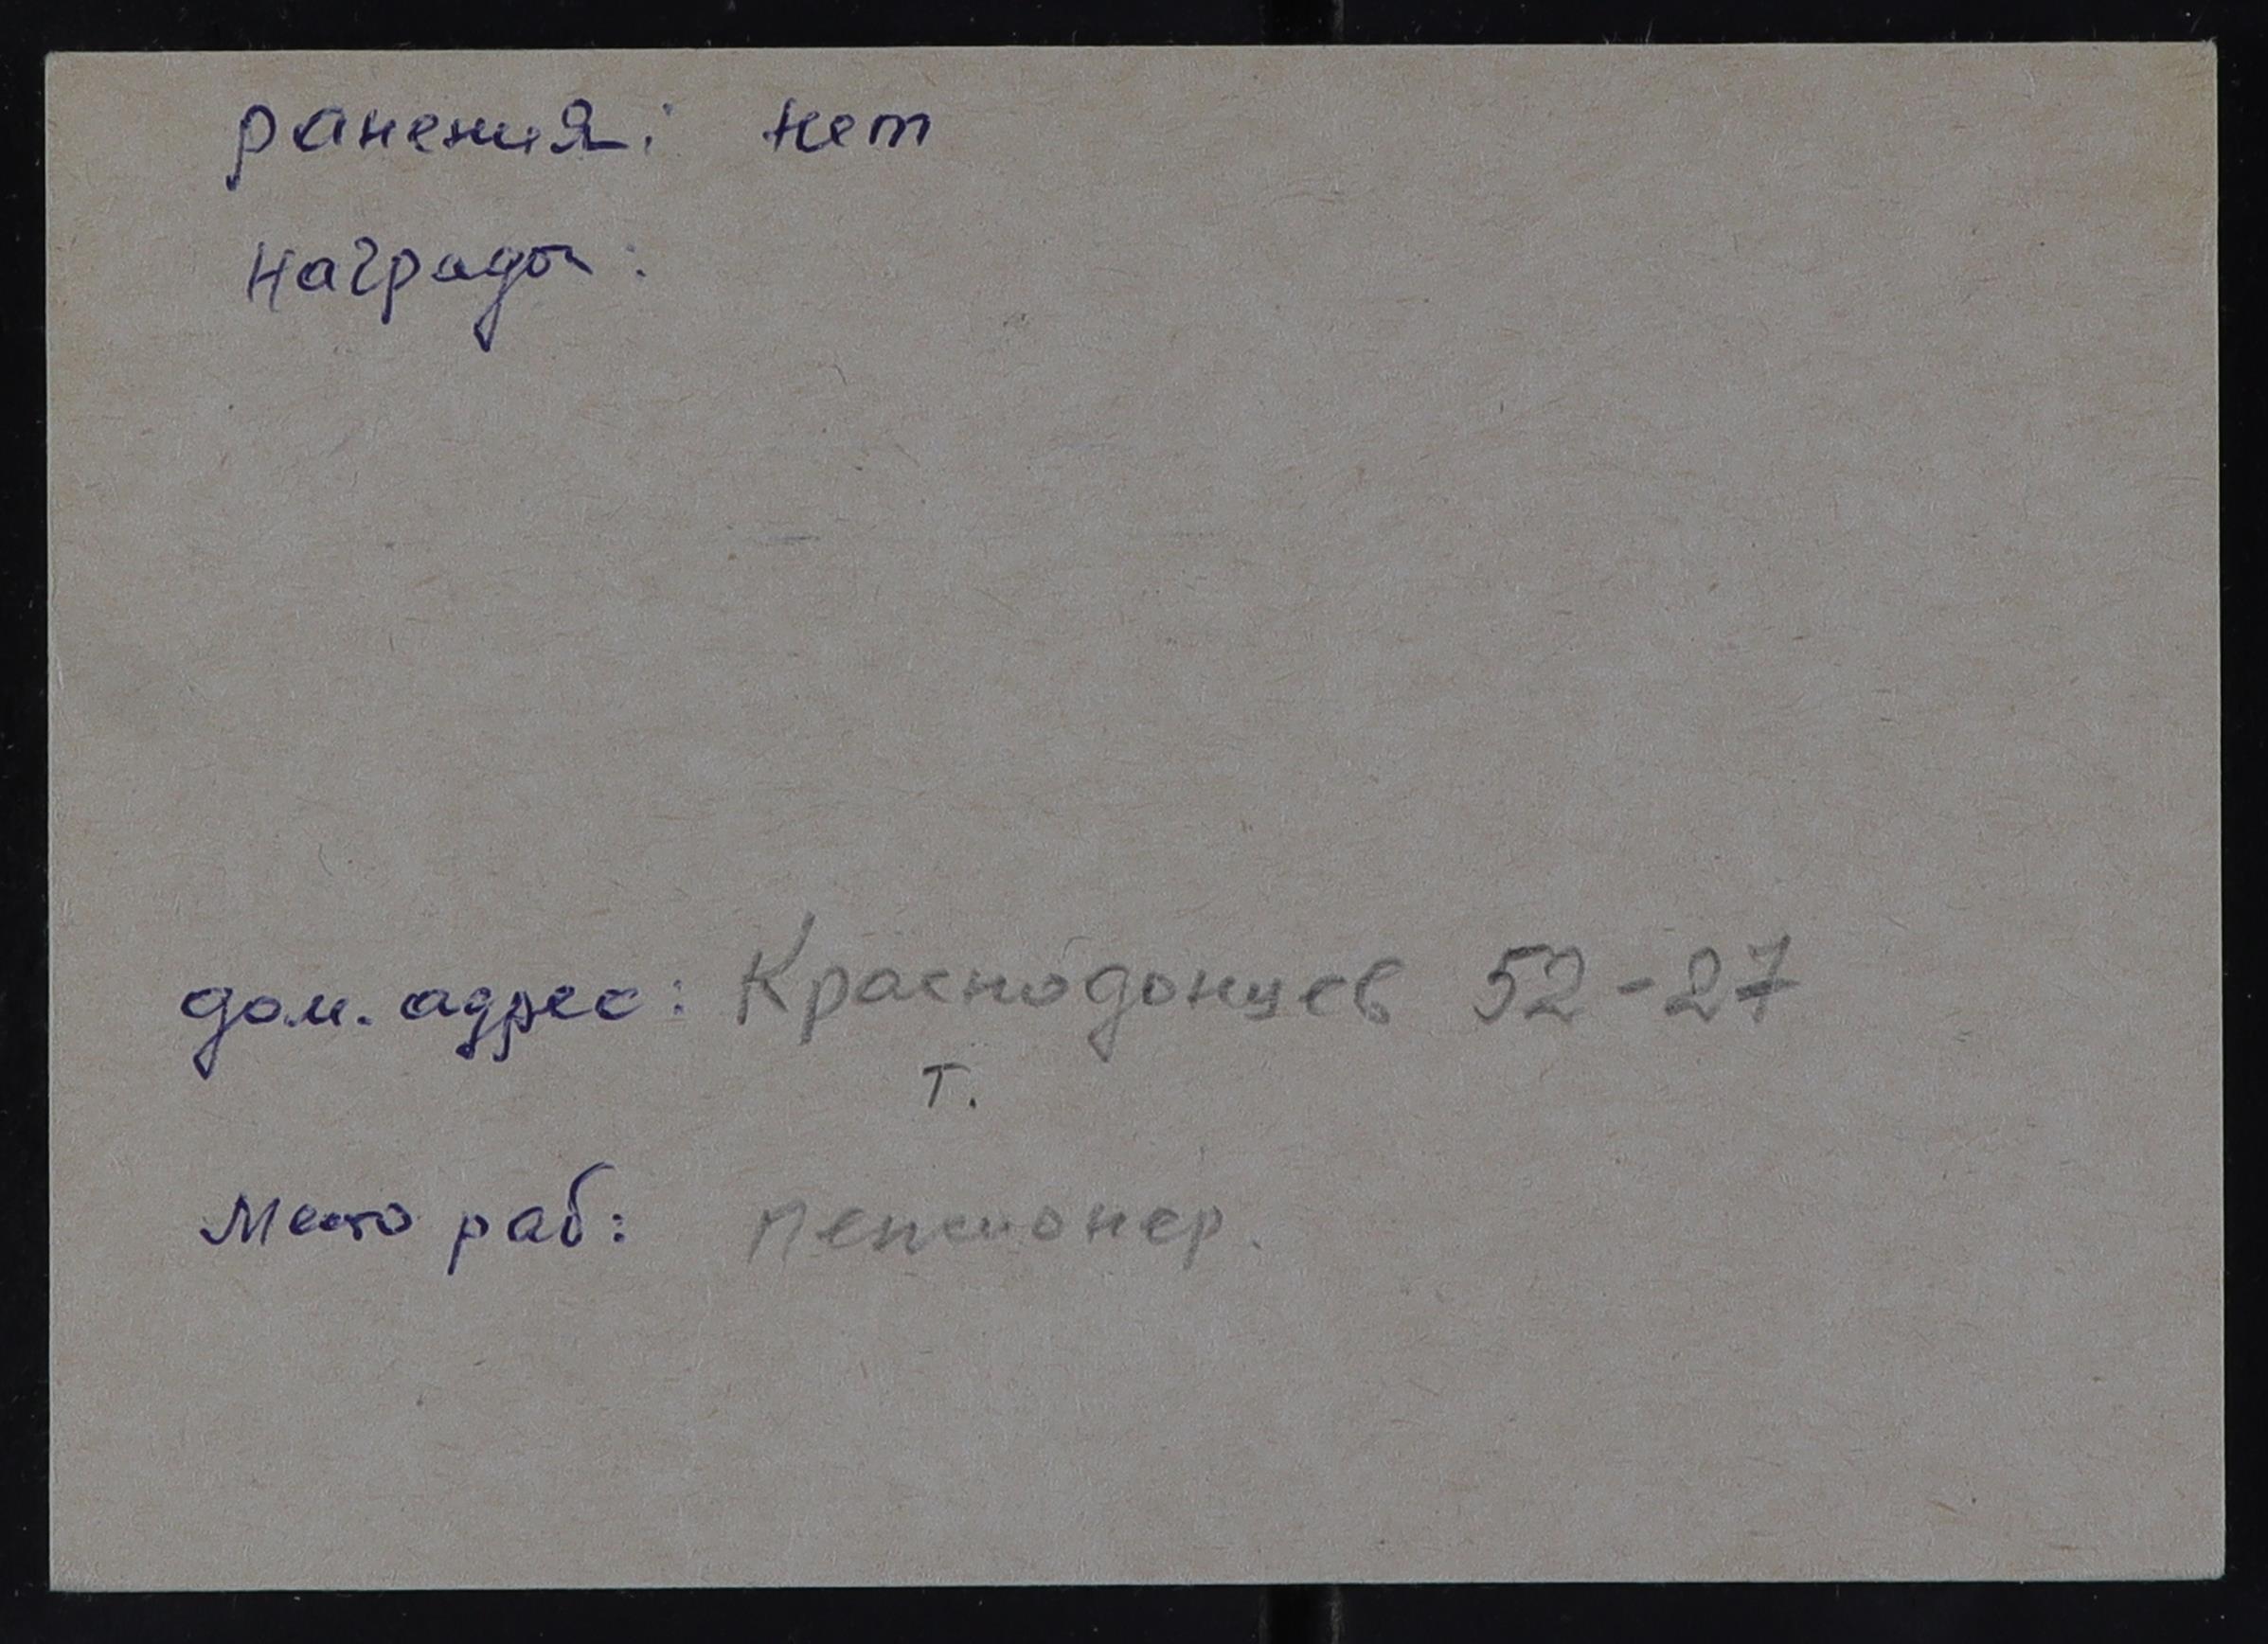 ранения: нет
награды:
дом. адрес: Краснодонцев 52-27
т.
Место раб: пенсионер.